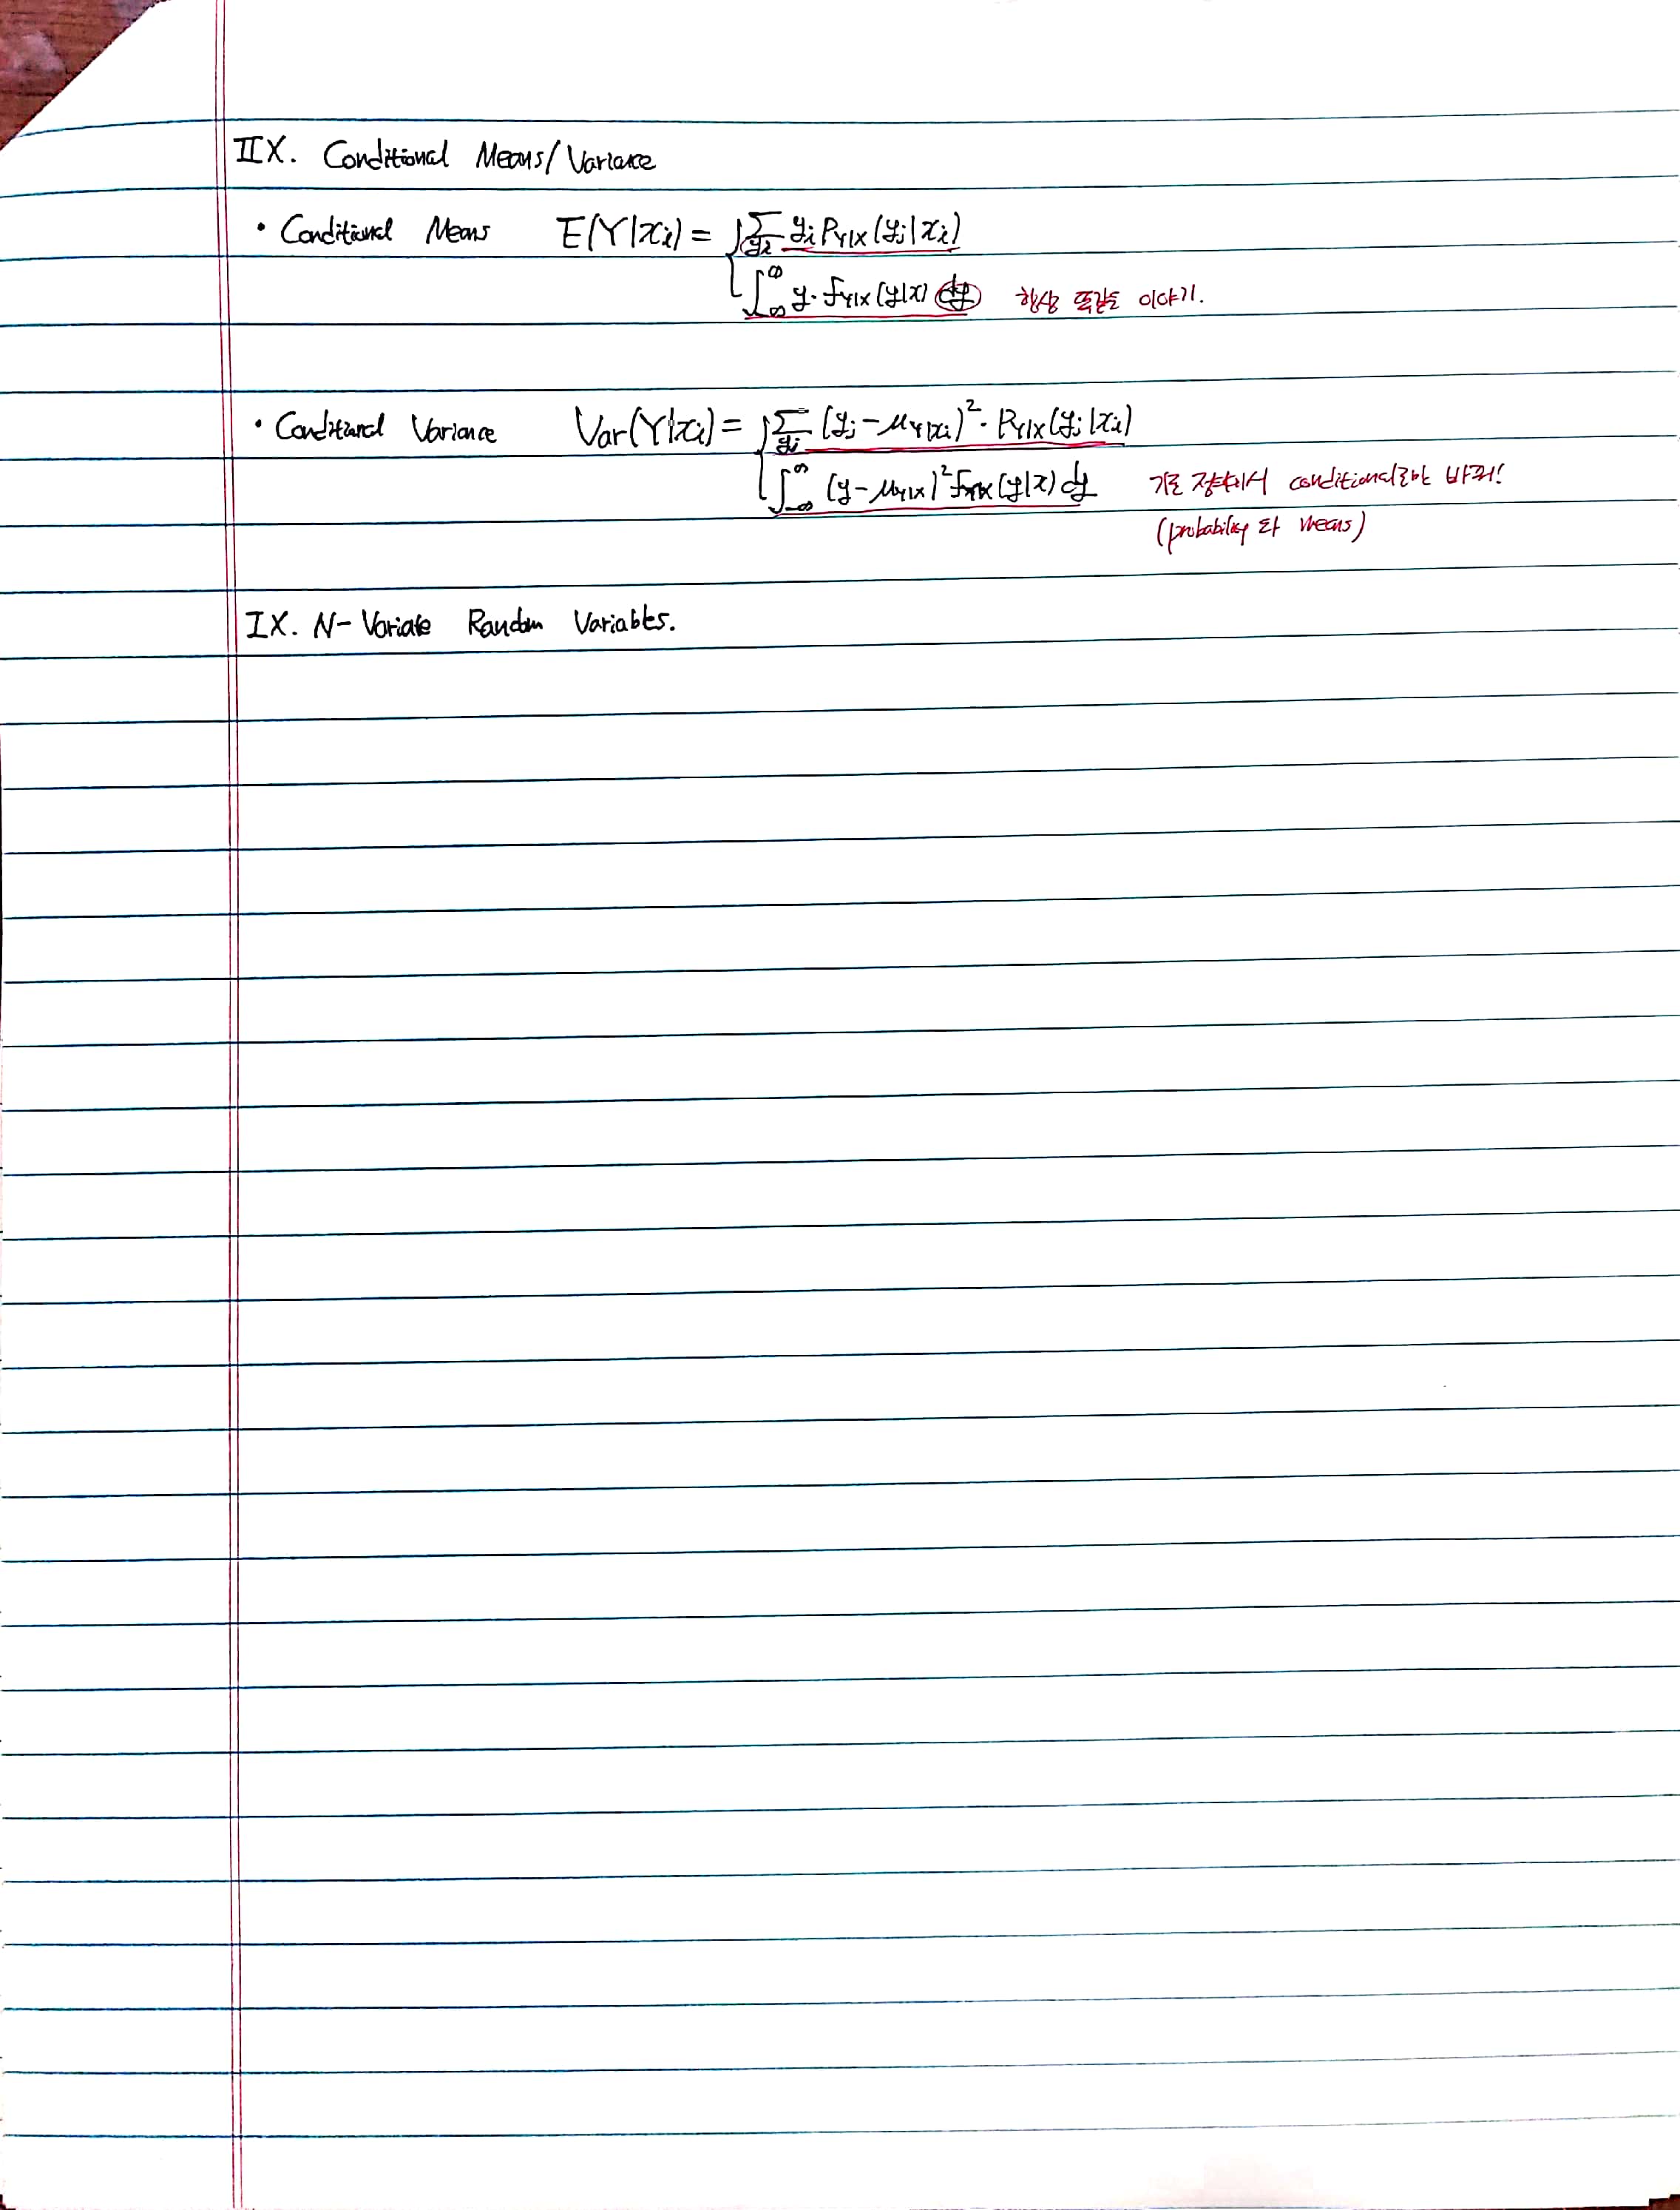 IIX. Conditional Means/Variance
• Conditional Means E(Y|xi) = { Σyi yi PY|X(yj|xi)
∫-∞^∞ y·fY|X(y|x) dy 항상 똑같은 이야기.
• Conditional Variance Var(Y|xi) = { Σyj (yj-μY|xi)²·PY|X(yj|xi)
∫-∞^∞ (y-μY|X)² fY|X(y|x) dy 기존 conditional로만 바꿔!
(probability와 means)
IX. N-Variate Random Variables.